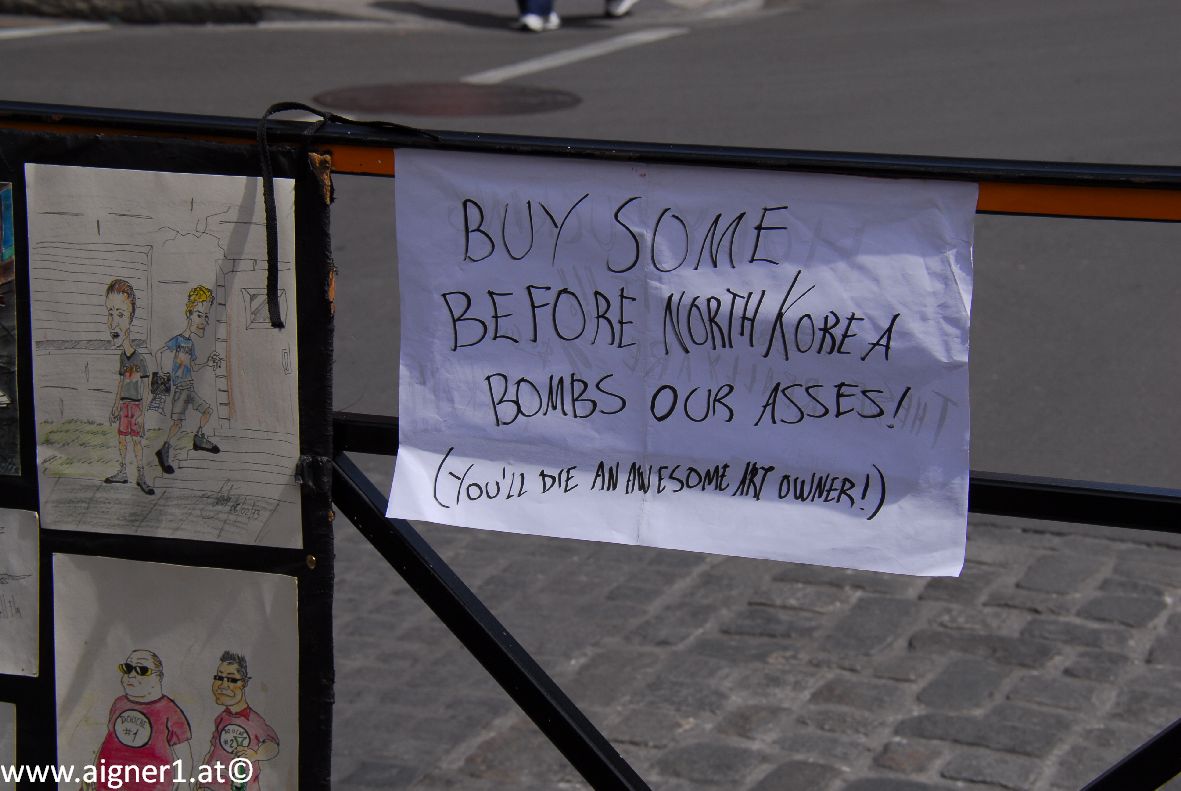 BUY SOME
BEFORE NORTH KOREA
BOMBS OUR ASSES!
(YOU'LL DIE AN AWESOME ART OWNER!)
DOUCHE
#1
#2
www.aigner1.at©